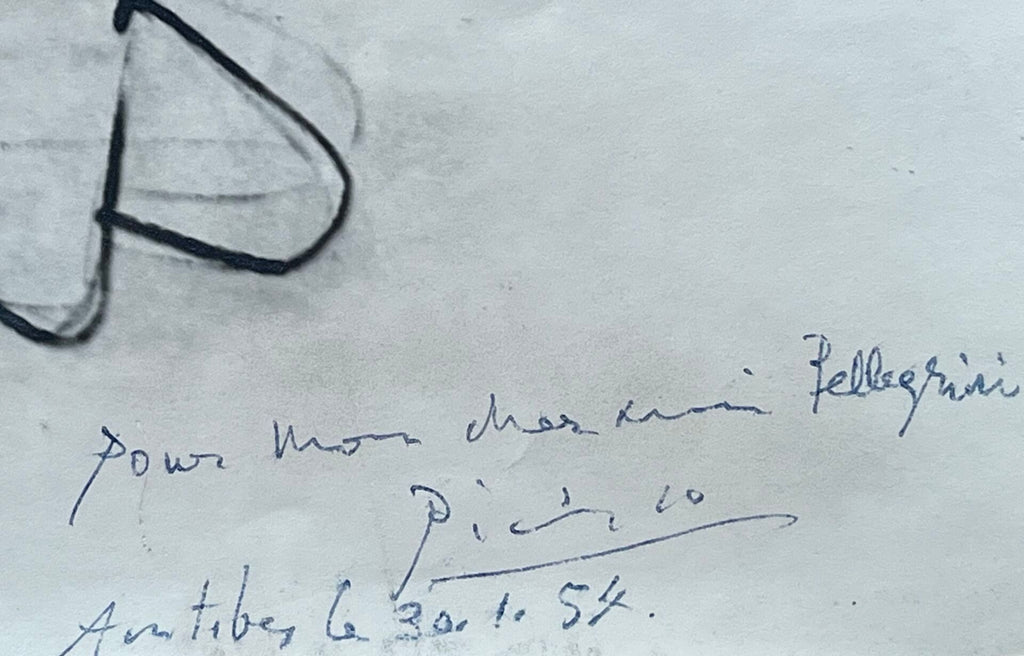 pour mon cher ami Pellegrini
Picasso
Antibes le 30.1.54.